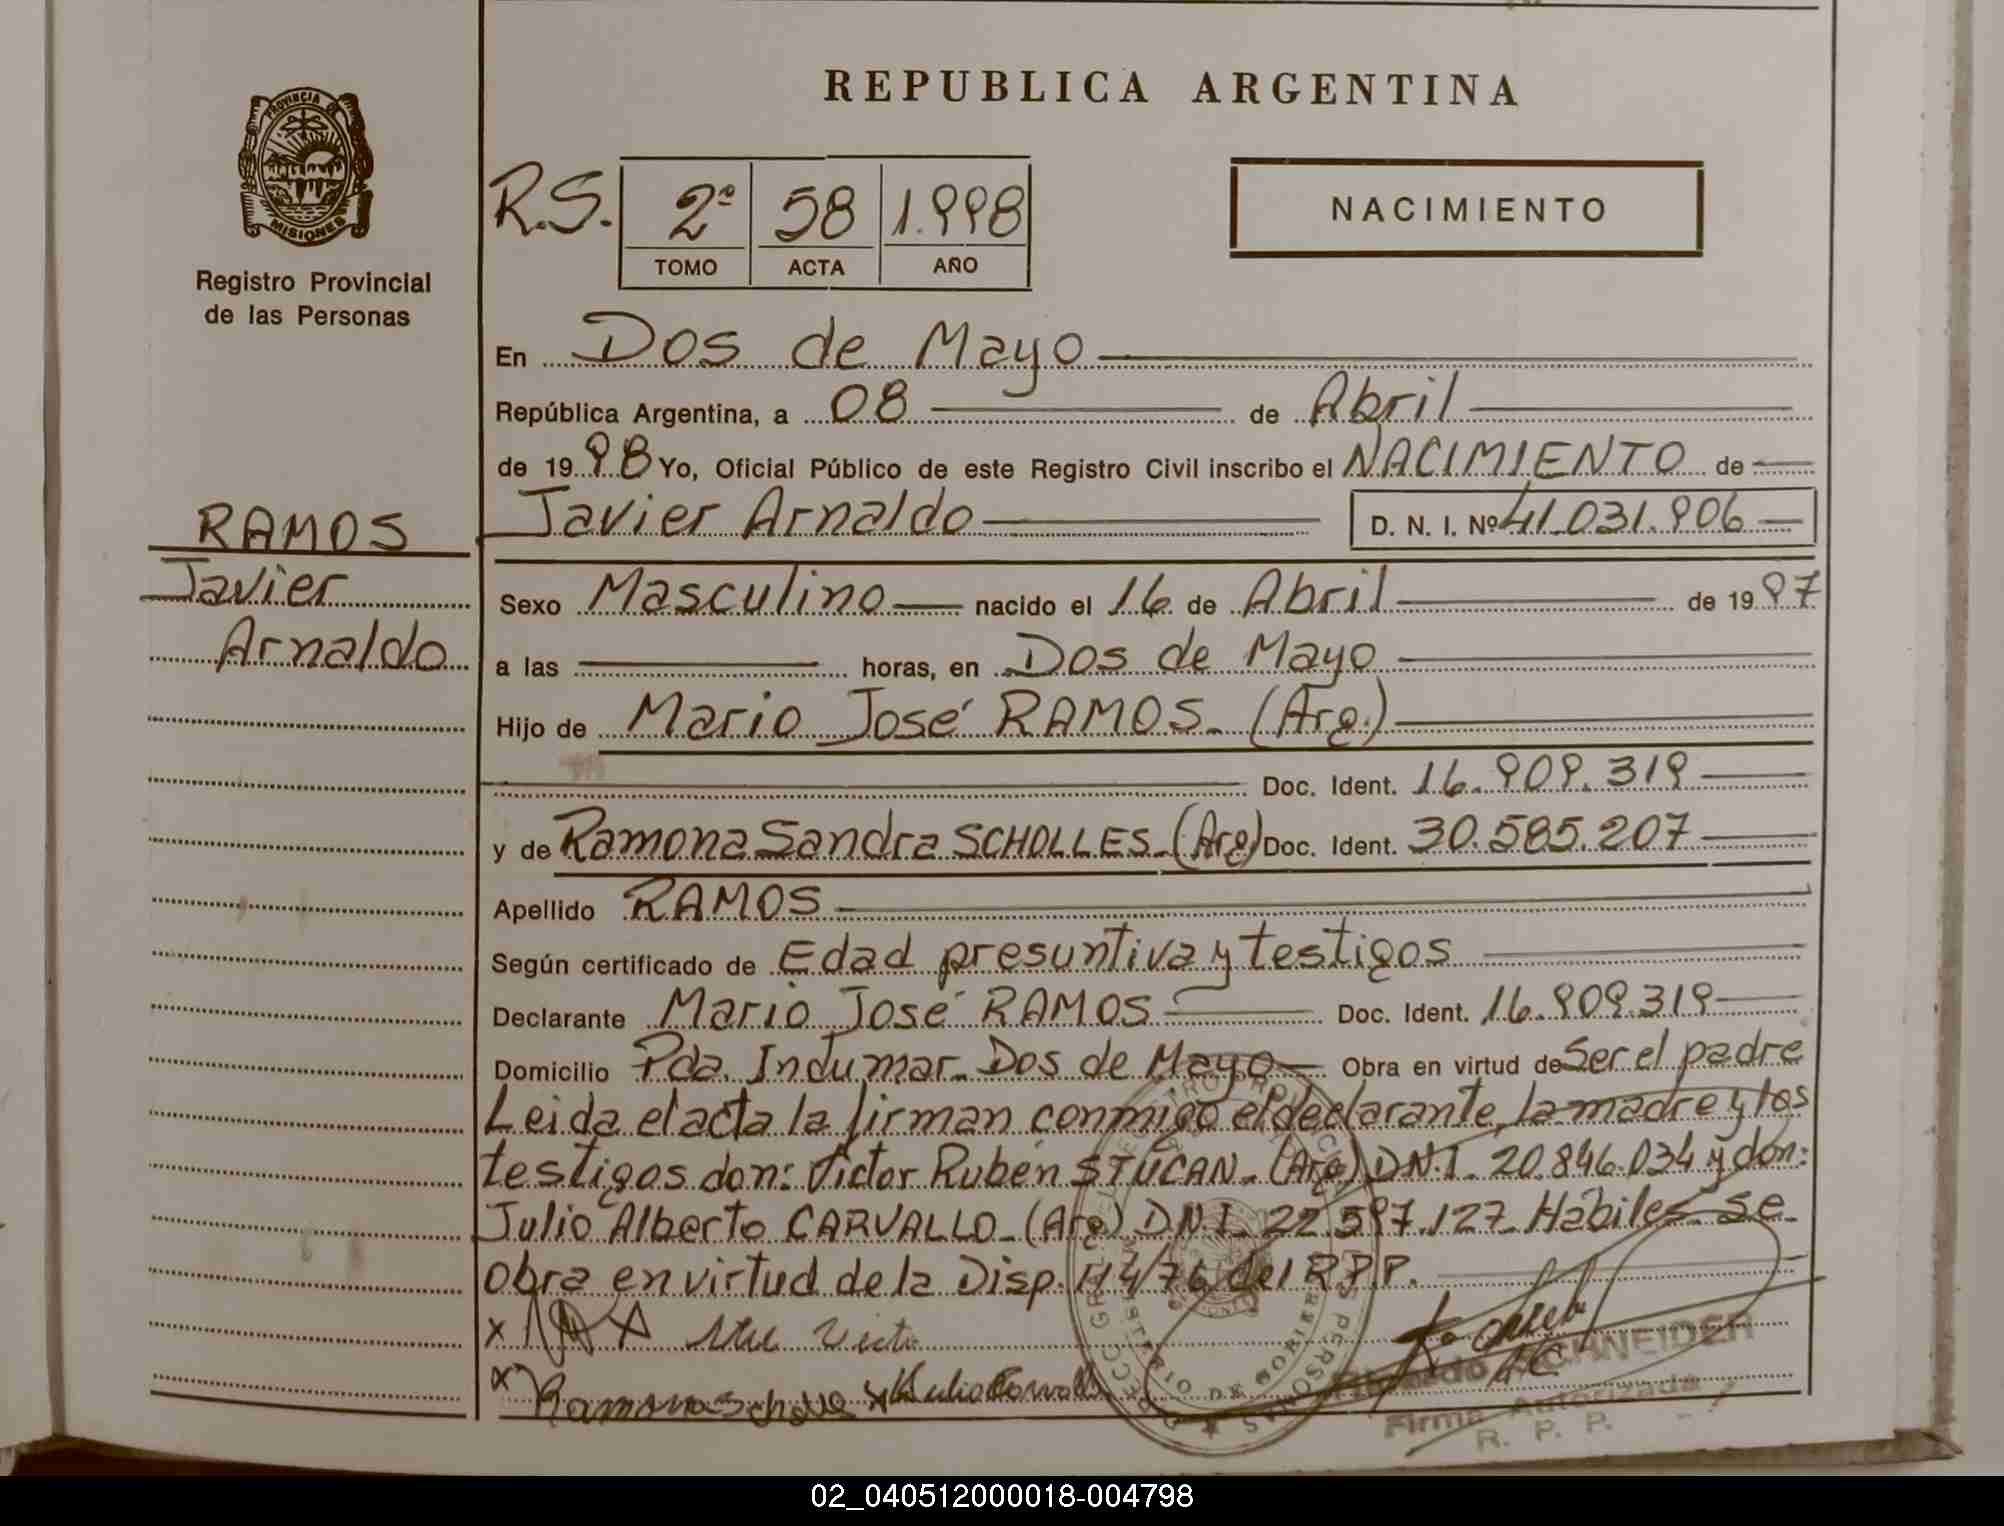 REPUBLICA ARGENTINA
PROVINCIA DE
MISIONES
Registro Provincial
de las Personas
R.S. 2º 58 1.998
TOMO ACTA AÑO
NACIMIENTO
En Dos de Mayo
República Argentina, a 08 de Abril
de 1998 Yo, Oficial Público de este Registro Civil inscribo el NACIMIENTO de
Javier Arnaldo D. N. I. Nº 41.031.906
RAMOS
Javier
Arnaldo
Sexo Masculino nacido el 16 de Abril de 1997
a las horas, en Dos de Mayo
Hijo de Mario José RAMOS. (Arg.)
Doc. Ident. 16.909.319
y de Ramona Sandra SCHOLLES. (Arg) Doc. Ident. 30.585.207
Apellido RAMOS
Según certificado de Edad presuntiva y testigos
Declarante Mario José RAMOS Doc. Ident. 16.909.319
Domicilio Pda. Indumar. Dos de Mayo Obra en virtud de Ser el padre
Leida el acta la firman conmigo el declarante, la madre y los
testigos don: Victor Rubén STUCAN. (Arg) D.N.I. 20.846.034 y don:
Julio Alberto CARVALLO. (Arg) D.N.I. 22.597.127. Hábiles se
obra en virtud de la Disp. 114/76 del R.P.P.
SCHNEIDER
Firma Autorizada
R. P. P.
02_040512000018-004798